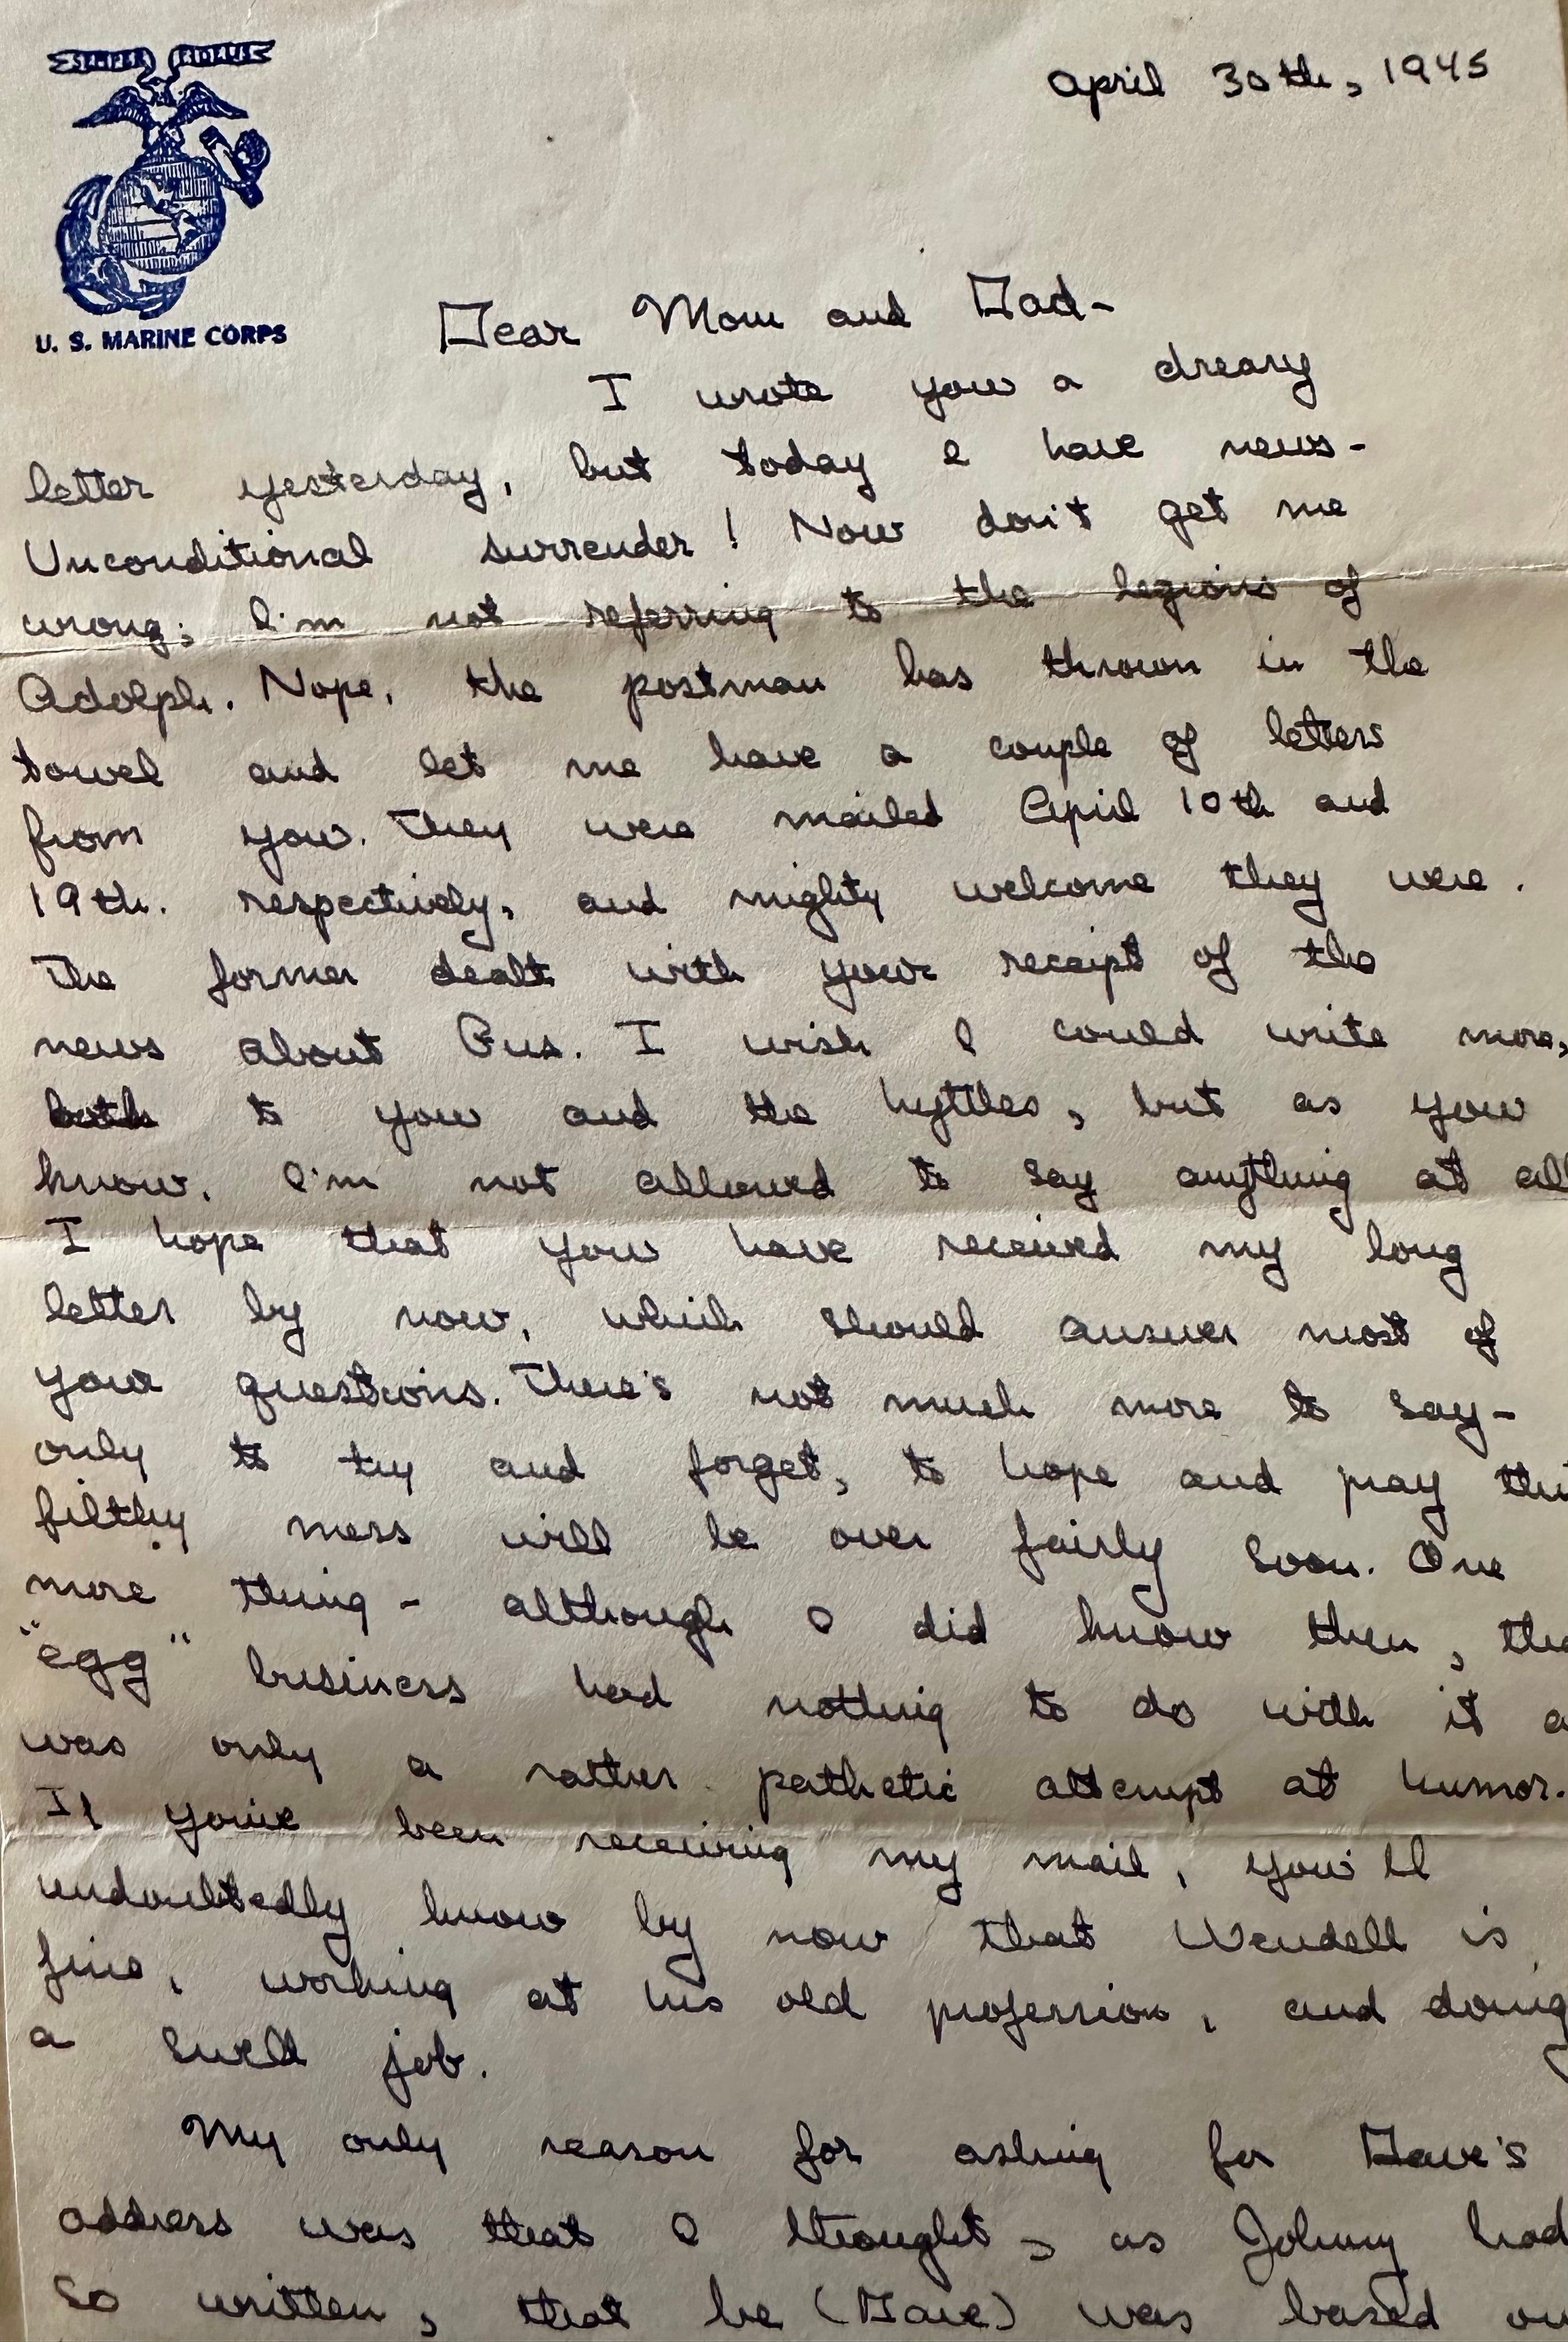 SEMPER FIDELIS
U. S. MARINE CORPS
April 30th, 1945
Dear Mom and Dad-
I wrote you a dreary
letter yesterday, but today I have news-
Unconditional surrender! Now don't get me
wrong; I'm not referring to the legions of
Adolph. Nope, the postman has thrown in the
towel and let me have a couple of letters
from you. They were mailed April 10th and
19th. respectively, and mighty welcome they were.
The former dealt with your receipt of the
news about Gus. I wish I could write more,
both to you and the Lyttles, but as you
know, I'm not allowed to say anything at all
I hope that you have received my long
letter by now, which should answer most of
your questions. There's not much more to say-
only to try and forget, to hope and pray this
filthy mess will be over fairly soon. One
more thing - although I did know then, the
"egg" business had nothing to do with it a
was only a rather pathetic attempt at humor.
If you've been receiving my mail, you'll
undoubtedly know by now that Wendell is
fine, working at his old profession, and doing
a swell job.
My only reason for asking for Dave's
address was that I thought, as Johnny had
so written, that he (Dave) was based on